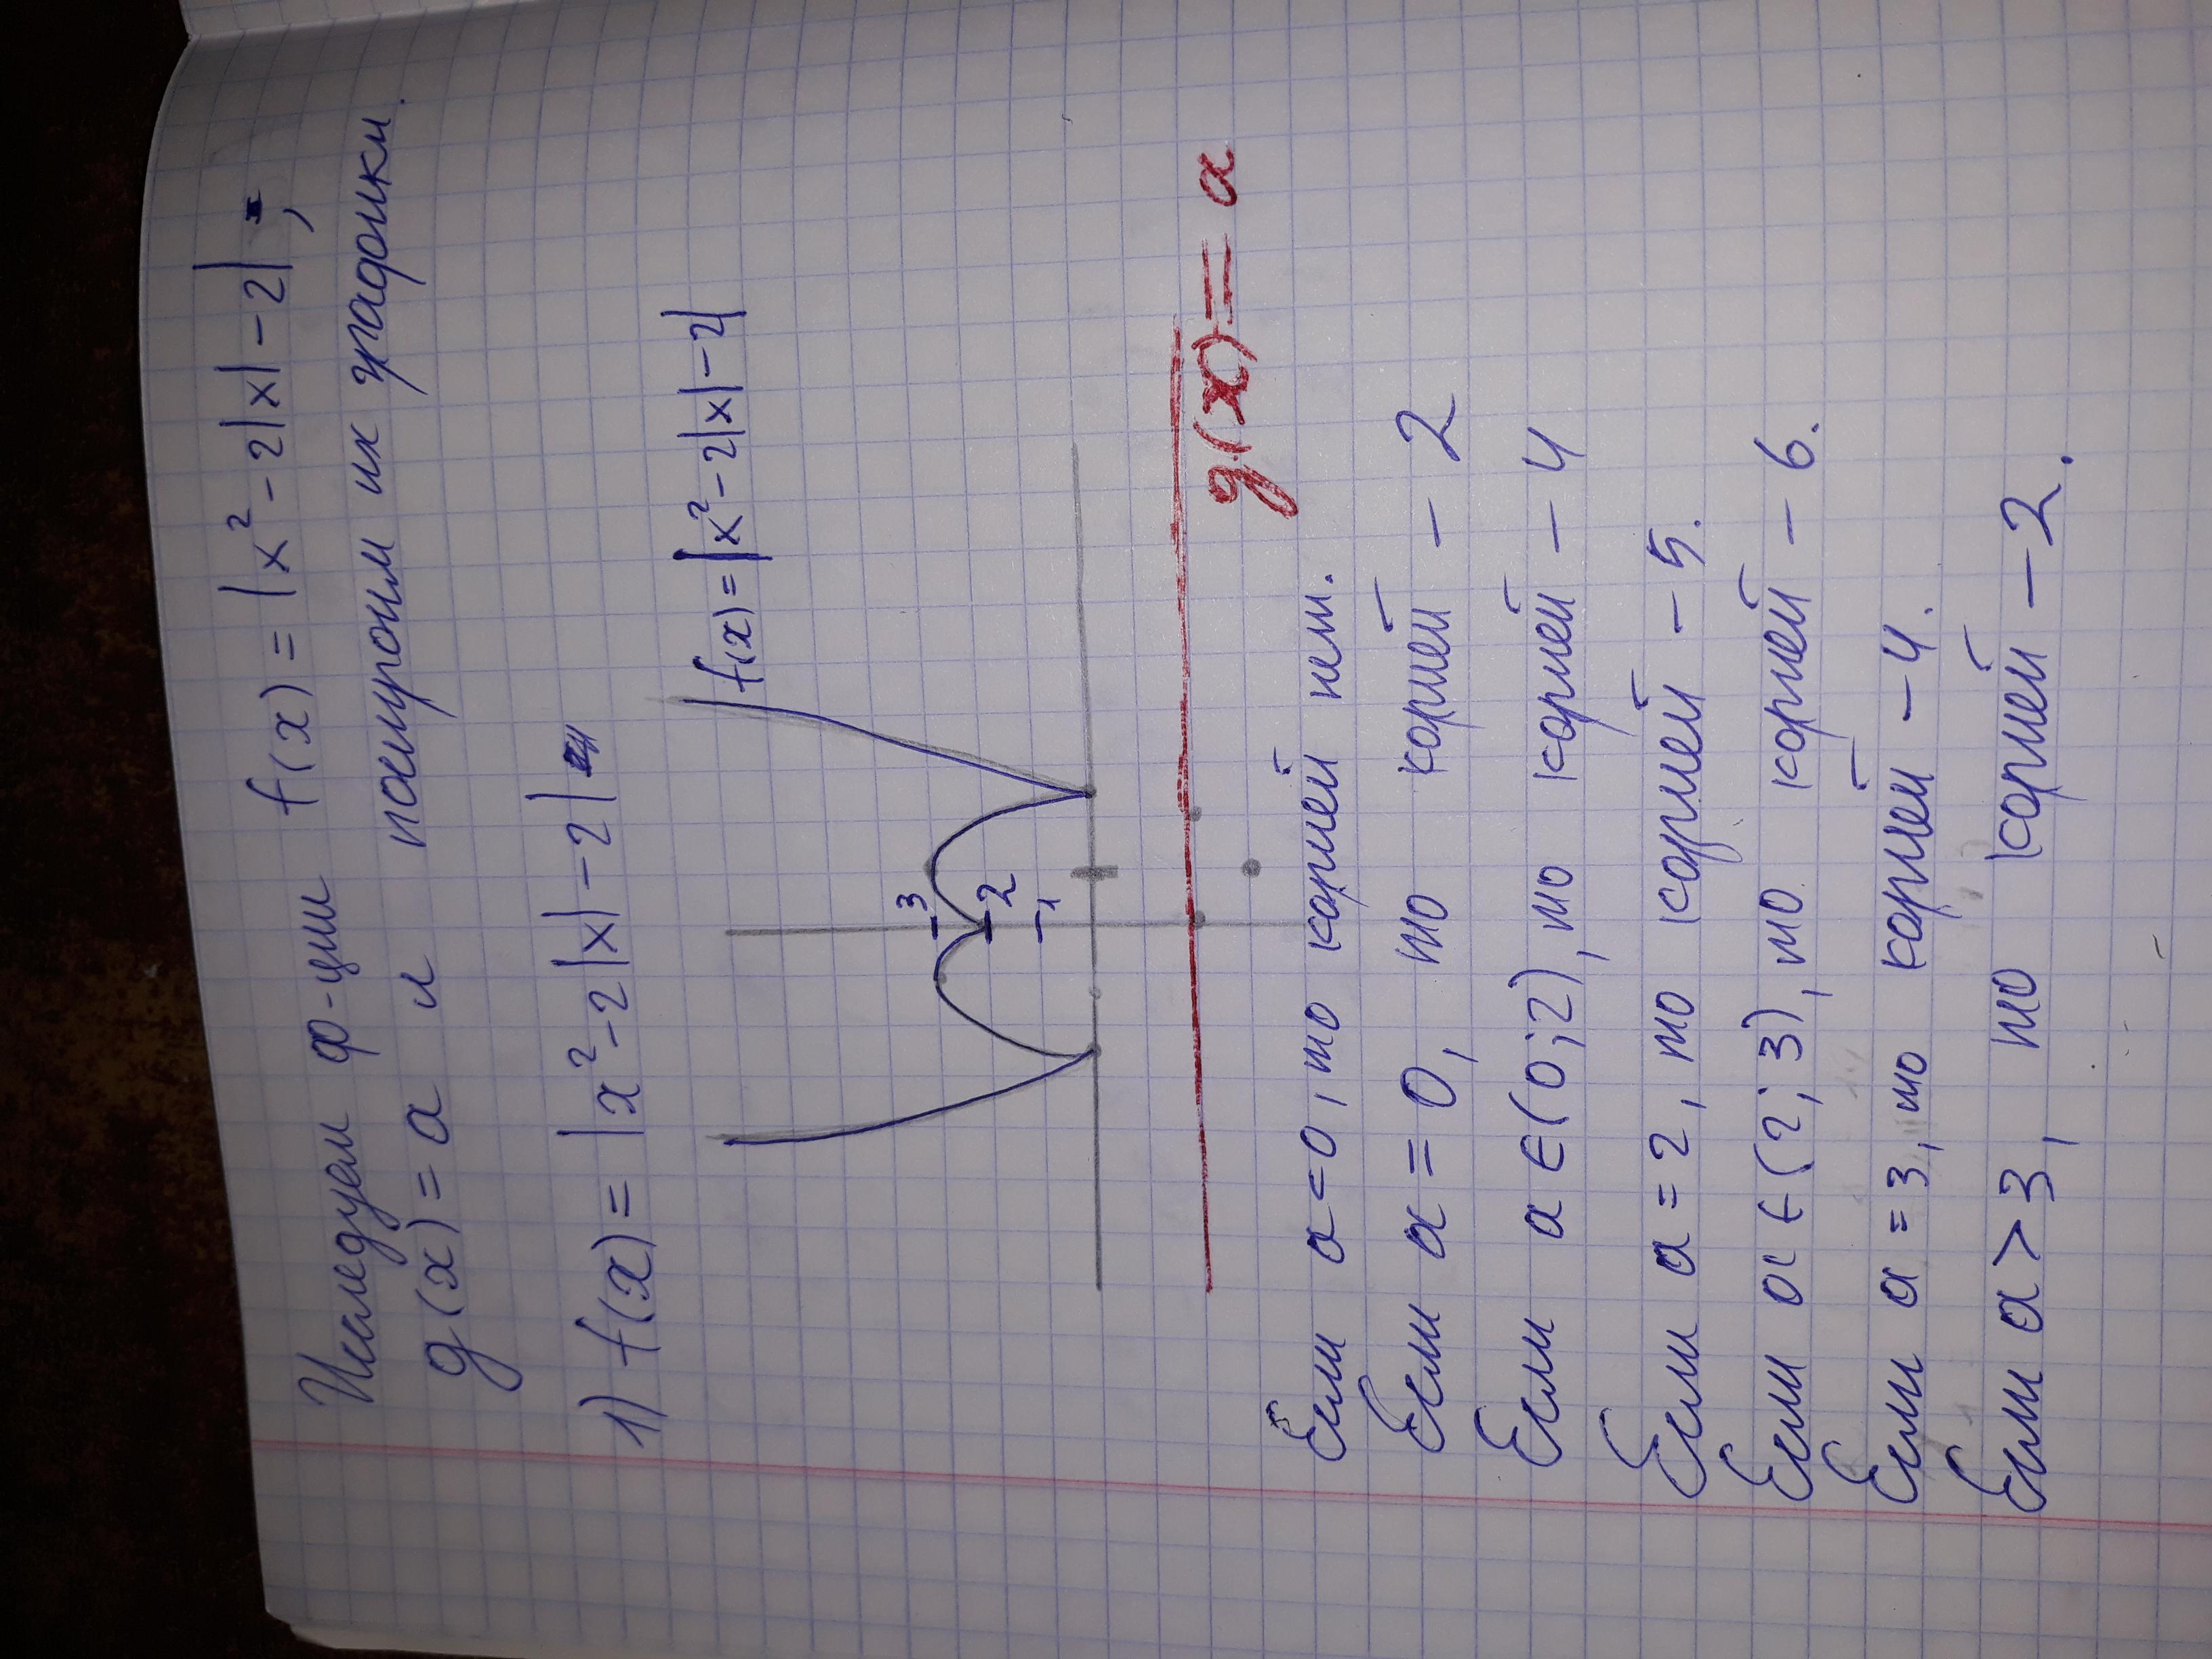 Исследуем ф-ции f(x) = |x² - 2|x| - 2|,
g(x) = a и построим их градоики.
1) f(x) = |x² - 2|x| - 2|
f(x) = |x² - 2|x| - 2|
3
2
1
g(x) = a
Если a < 0, то корней нет.
Если a = 0, то корней - 2
Если a ∈ (0; 2), то корней - 4
Если a = 2, то корней - 5.
Если a ∈ (2; 3), то корней - 6.
Если a = 3, то корней - 4.
Если a > 3, то корней - 2.